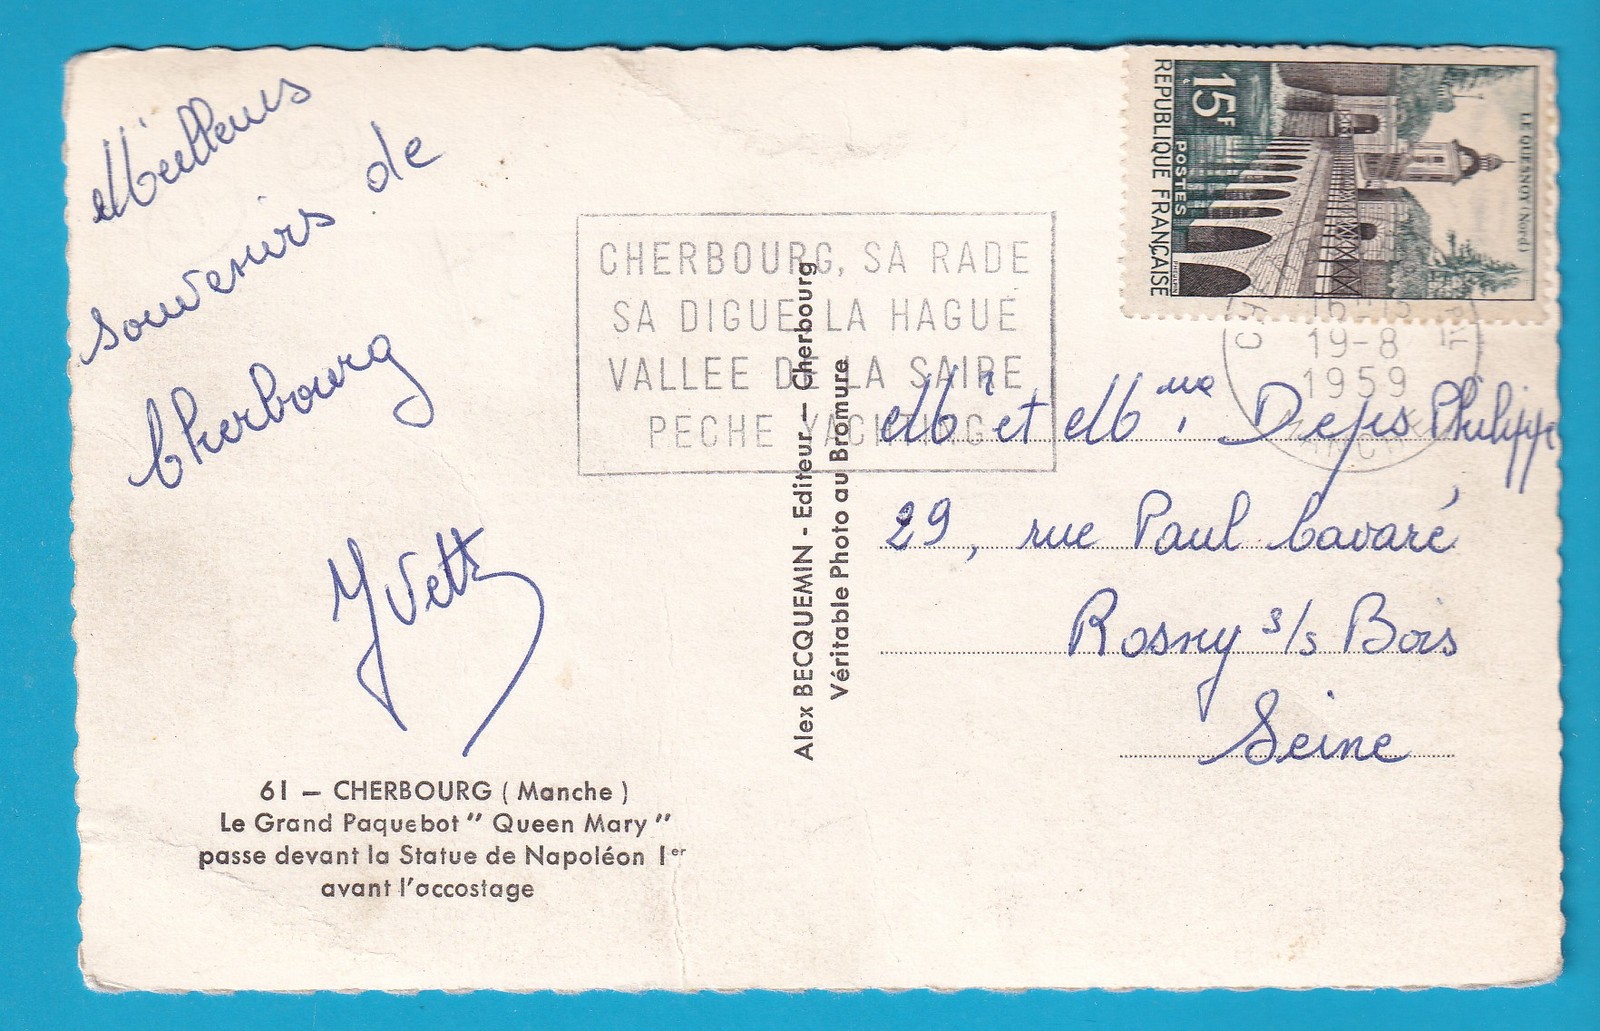 Meilleurs
souvenirs de
Cherbourg
Yvette
61 — CHERBOURG ( Manche )
Le Grand Paquebot " Queen Mary "
passe devant la Statue de Napoléon 1er
avant l'accostage
Alex BECQUEMIN - Editeur — Cherbourg
Véritable Photo au Bromure
CHERBOURG, SA RADE
SA DIGUE LA HAGUE
VALLEE DE LA SAIRE
PECHE YACHTING
LE QUESNOY (Nord)
15F
POSTES
REPUBLIQUE FRANÇAISE
19-8
1959
Mr et Mme Deps Philippe
29, rue Paul Cavaré
Rosny s/s Bois
Seine